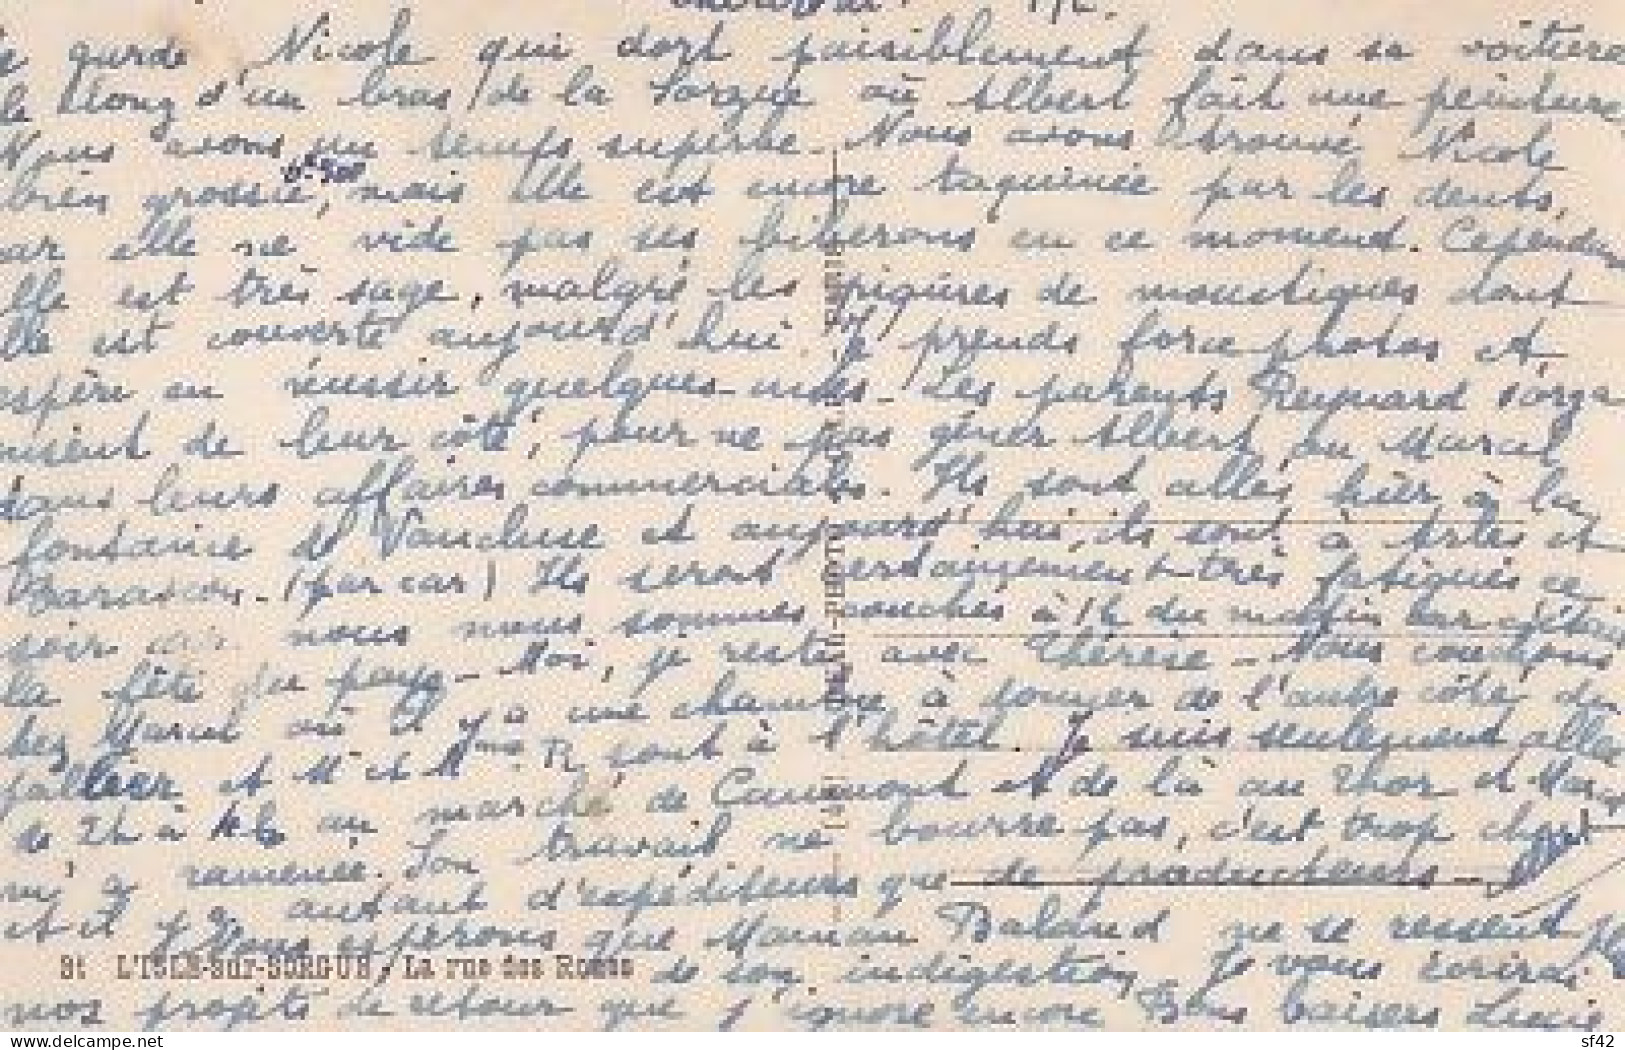 garde Nicole qui dort paisiblement dans sa voiture
le long d'un bras de la Sorgue où Albert fait une peinture.
Nous avons un temps superbe. Nous avons trouvé Nicole
bien grossie, mais elle est encore taquinée par les dents,
car elle ne vide pas ses biberons en ce moment. Cependant
elle est très sage, malgré les piqûres de moustiques dont
elle est couverte aujourd'hui. Je prends force photos et
espère en réussir quelques-unes. Les parents Reynard s'orga
nisent de leur côté, pour ne pas gêner Albert ou Marcel
dans leurs affaires commerciales. Ils sont allés hier à la
fontaine de Vaucluse et aujourd'hui, ils sont à Arles et
Tarascon. (par car) Ils seront certainement très fatigués ce
soir car nous nous sommes couchés à 1h du matin car c'était
la fête du pays. Moi, je reste avec Thérèse. Nous couchons
chez Marcel où il y a une chambre à donner de l'autre côté du
pallier et Mr et Mme R. sont à l'hôtel. Je suis seulement allée
de 2h à 4h au marché de Caumont et de là au Thor et Marcel
m'a ramenée. Son travail ne bourre pas, c'est trop cher
et il y a autant d'expéditeurs que de producteurs.
Nous espérons que Maman Baland ne se ressent
31 L'ISLE-sur-SORGUE - La rue des Roues
de son indigestion. Je vous écrirai
nos projets de retour que j'ignore encore Bons baisers Lucie
© delcampe.net
sf42